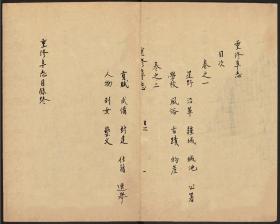 重修阜志
目次
卷之一
星野 沿革 疆域 城池 公署
學校 風俗 古蹟 物產
卷之二
貢賦 武備 封建 仕籍 選舉
人物 列女 藝文
重修阜志目錄終